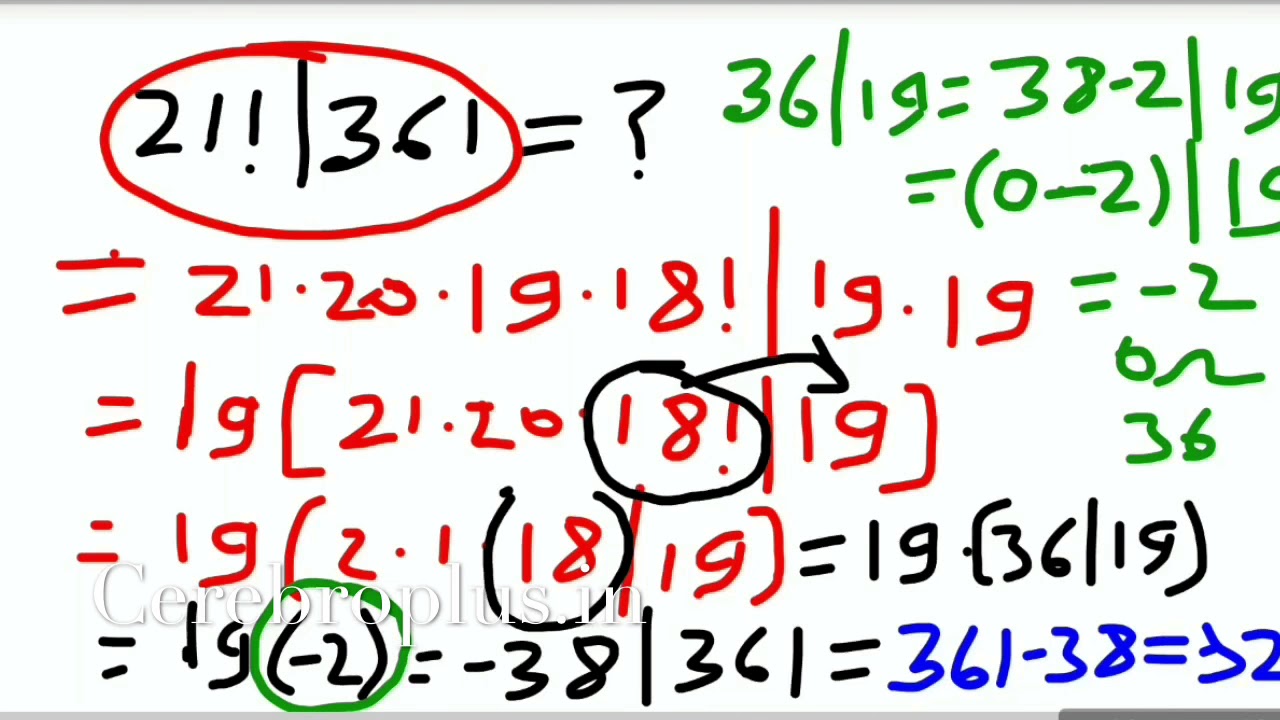 21! | 361 = ?
36 | 19 = 38 - 2 | 19
= (0 - 2) | 19
= -2
or
36
= 21 · 20 · 19 · 18! | 19 · 19
= 19 [ 21 · 20 · 18! | 19 ]
= 19 ( 2 · 1 · (18) | 19 ) = 19 · (36 | 19)
Cerebroplus.in
= 19 (-2) = -38 | 361 = 361 - 38 = 32